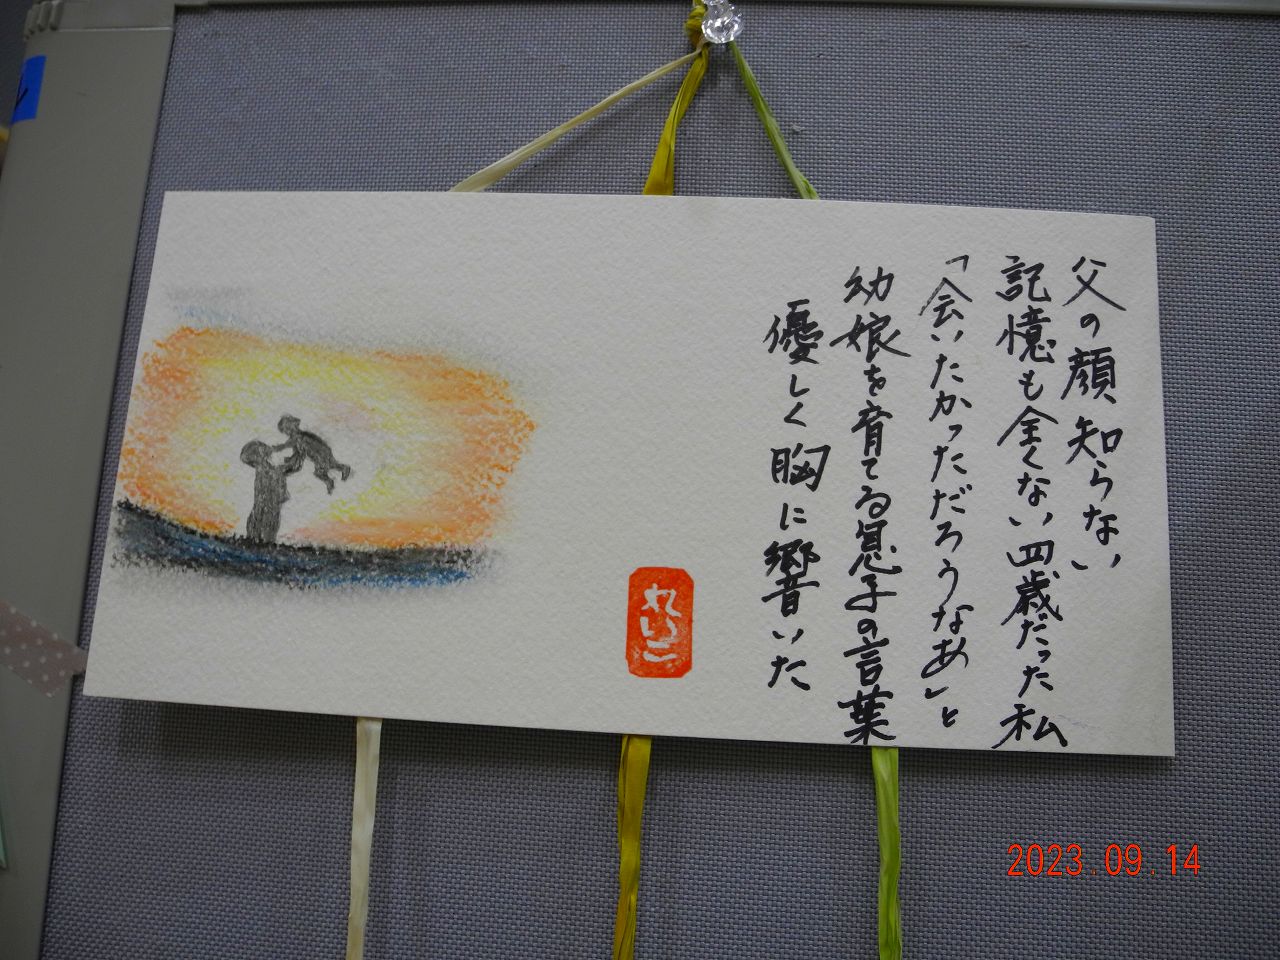 父の顔、知らない、
記憶も全くない四歳だった私
「会いたかっただろうなあ」と
幼娘を育てる息子の言葉
優しく胸に響いた
れいこ
2023.09.14